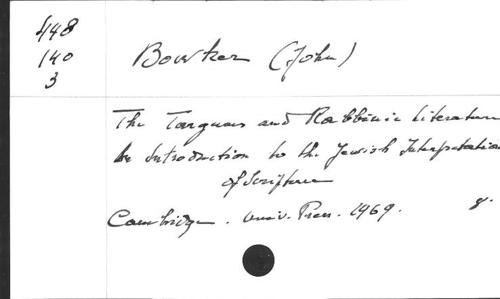 448
140
3
Bowker (John)
The Targums and Rabbinic Literature
An Introduction to the Jewish Interpretation
of Scripture
Cambridge. Univ. Press. 1969. 8.